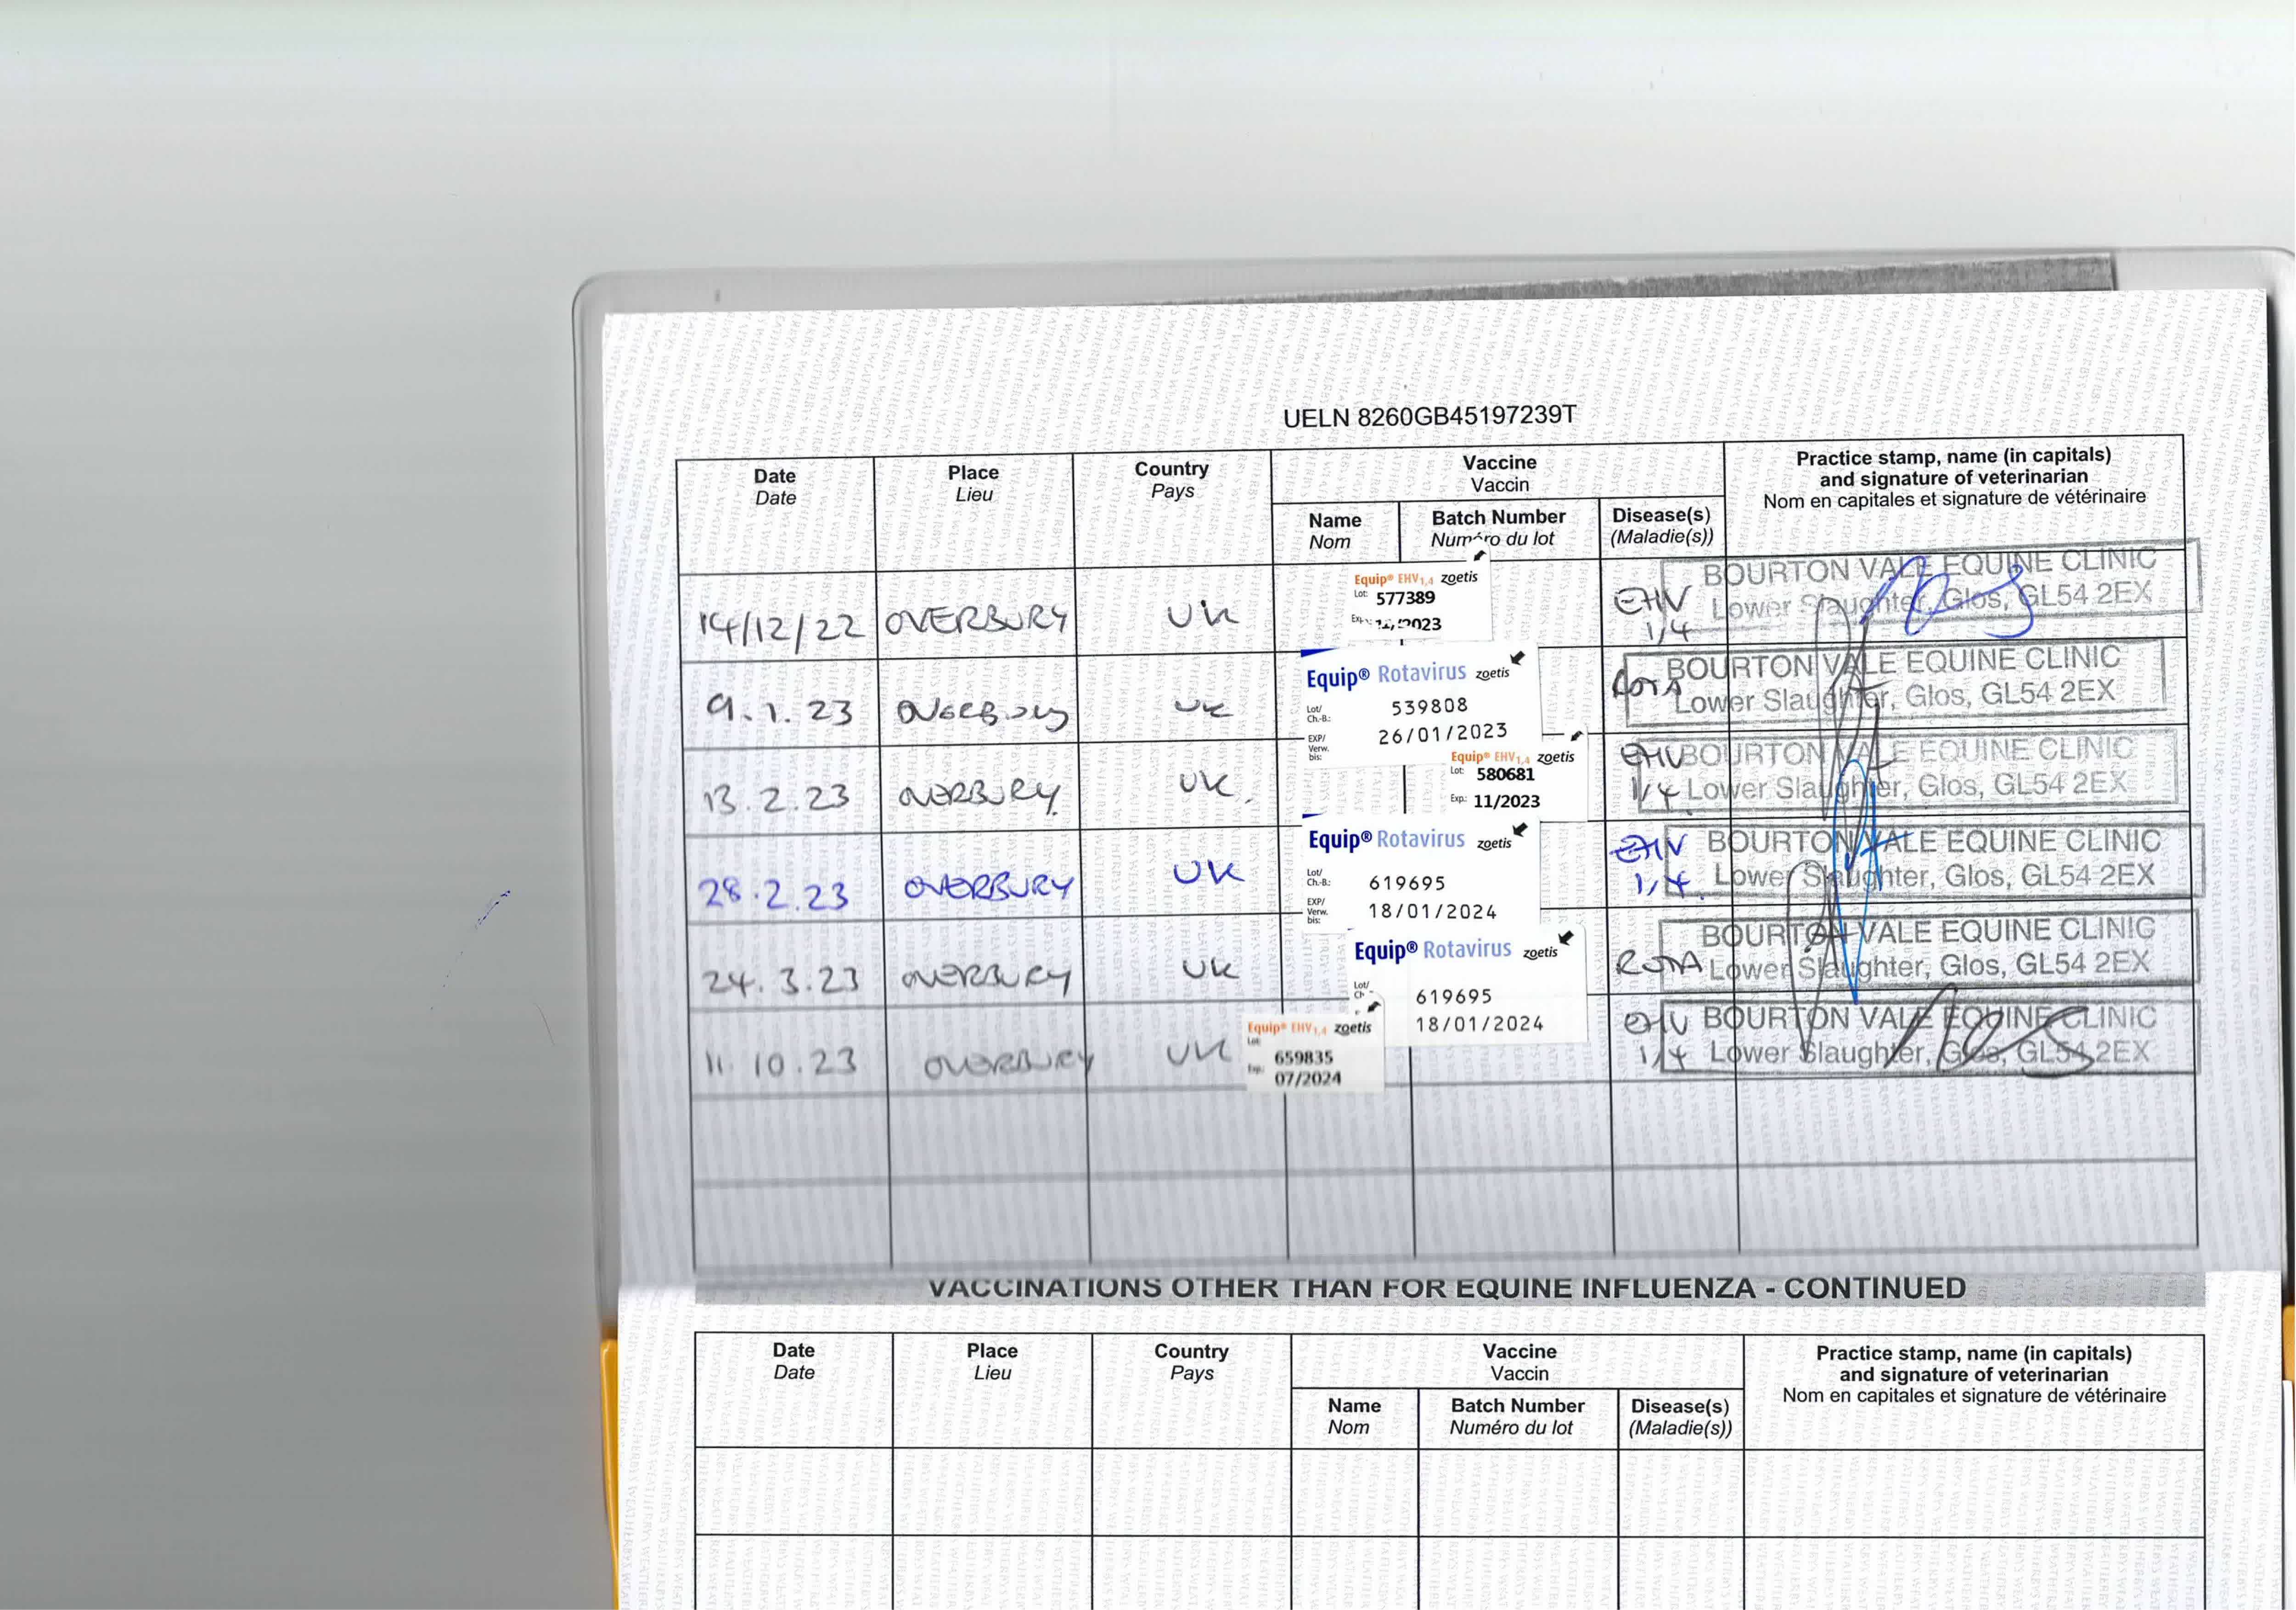 UELN 8260GB45197239T
Date
Date
Place
Lieu
Country
Pays
Vaccine
Vaccin
Name
Nom
Batch Number
Numéro du lot
Disease(s)
(Maladie(s))
Practice stamp, name (in capitals)
and signature of veterinarian
Nom en capitales et signature de vétérinaire
14/12/22 OVERBURY UK
Equip® EHV1,4 zoetis
Lot: 577389
2023
EHV
1/4
BOURTON VALE EQUINE CLINIC
Lower Slaughter, Glos, GL54 2EX
9.1.23 OVERBURY UK
Equip® Rotavirus zoetis
Lot/
Ch.-B.: 539808
EXP/
Verw.
bis: 26/01/2023
Rota
BOURTON VALE EQUINE CLINIC
Lower Slaughter, Glos, GL54 2EX
13.2.23 OVERBURY UK.
Equip® EHV1,4 zoetis
Lot: 580681
Exp.: 11/2023
EHV
1/4
BOURTON VALE EQUINE CLINIC
Lower Slaughter, Glos, GL54 2EX
28.2.23 OVERBURY UK
Equip® Rotavirus zoetis
Lot/
Ch.-B.: 619695
EXP/
Verw.
bis: 18/01/2024
EHV
1/4
BOURTON VALE EQUINE CLINIC
Lower Slaughter, Glos, GL54 2EX
24.3.23 OVERBURY UK
Equip® Rotavirus zoetis
Lot/
619695
18/01/2024
ROTA
BOURTON VALE EQUINE CLINIC
Lower Slaughter, Glos, GL54 2EX
11.10.23 OVERBURY UK
Equip® EHV1,4 zoetis
Lot:
659835
Exp.: 07/2024
EHV
1/4
BOURTON VALE EQUINE CLINIC
Lower Slaughter, Glos, GL54 2EX
VACCINATIONS OTHER THAN FOR EQUINE INFLUENZA - CONTINUED
Date
Date
Place
Lieu
Country
Pays
Vaccine
Vaccin
Name
Nom
Batch Number
Numéro du lot
Disease(s)
(Maladie(s))
Practice stamp, name (in capitals)
and signature of veterinarian
Nom en capitales et signature de vétérinaire